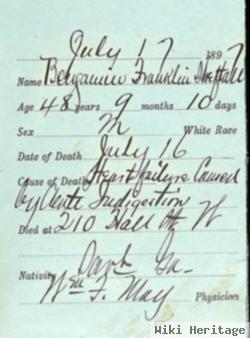 July 17 1897
Name Benjamin Franklin Sheftall
Age 48 years 9 months 10 days
Sex M White Race
Date of Death July 16
Cause of Death Heart failure Caused
by Acute Indigestion
Died at 210 Hall St W
Nativity Savh Ga-
Wm F. May Physician
Wiki Heritage